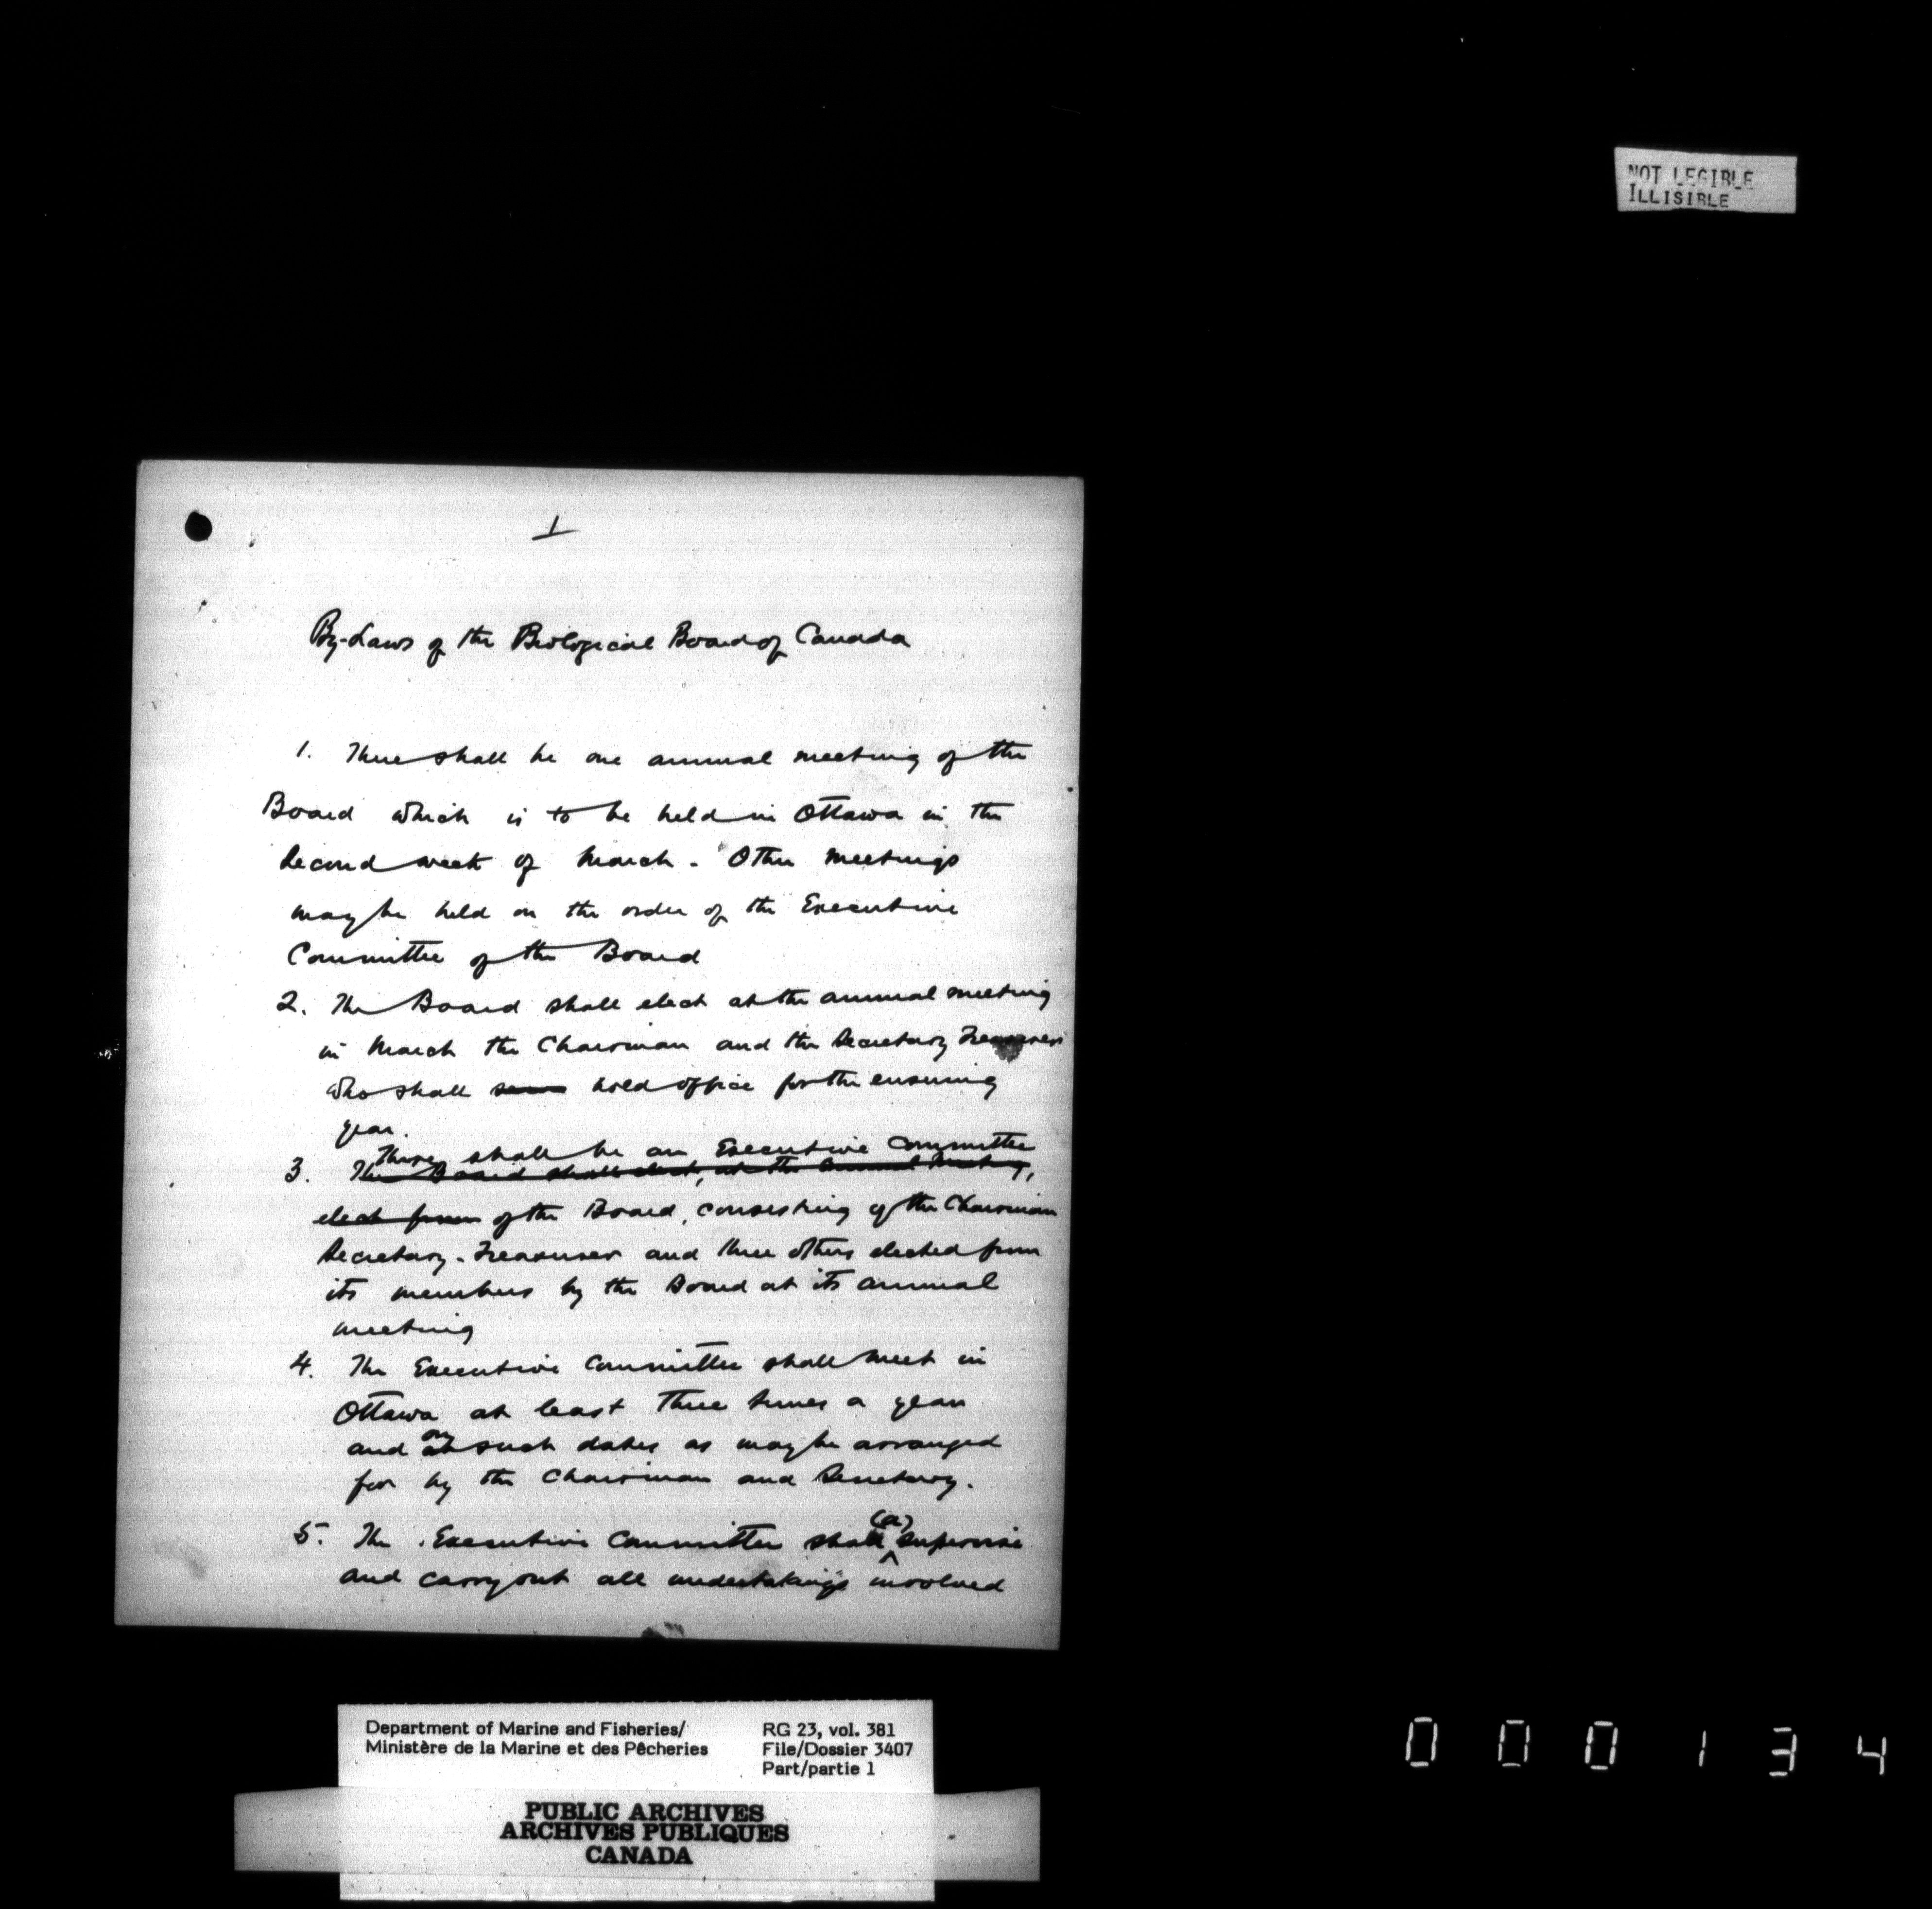 NOT LEGIBLE
ILLISIBLE
1
By-Laws of the Biological Board of Canada
1. There shall be one annual meeting of the
Board which is to be held in Ottawa in the
second week of March. Other meetings
may be held on the order of the Executive
Committee of the Board
2. The Board shall elect at the annual meeting
in March the Chairman and the Secretary Treasurer
who shall hold office for the ensuing
year.
There shall be an Executive Committee
3. The Board shall elect, at the annual meeting,
elect from of the Board, consisting of the Chairman
Secretary-Treasurer and three others elected from
its members by the Board at its annual
meeting
4. The Executive Committee shall meet in
Ottawa at least three times a year
on
and at such dates as may be arranged
for by the Chairman and Secretary.
(a)
5. The Executive Committee shall ^ supervise
and carry out all undertakings involved
Department of Marine and Fisheries/
Ministère de la Marine et des Pêcheries
RG 23, vol. 381
File/Dossier 3407
Part/partie 1
PUBLIC ARCHIVES
ARCHIVES PUBLIQUES
CANADA
000134